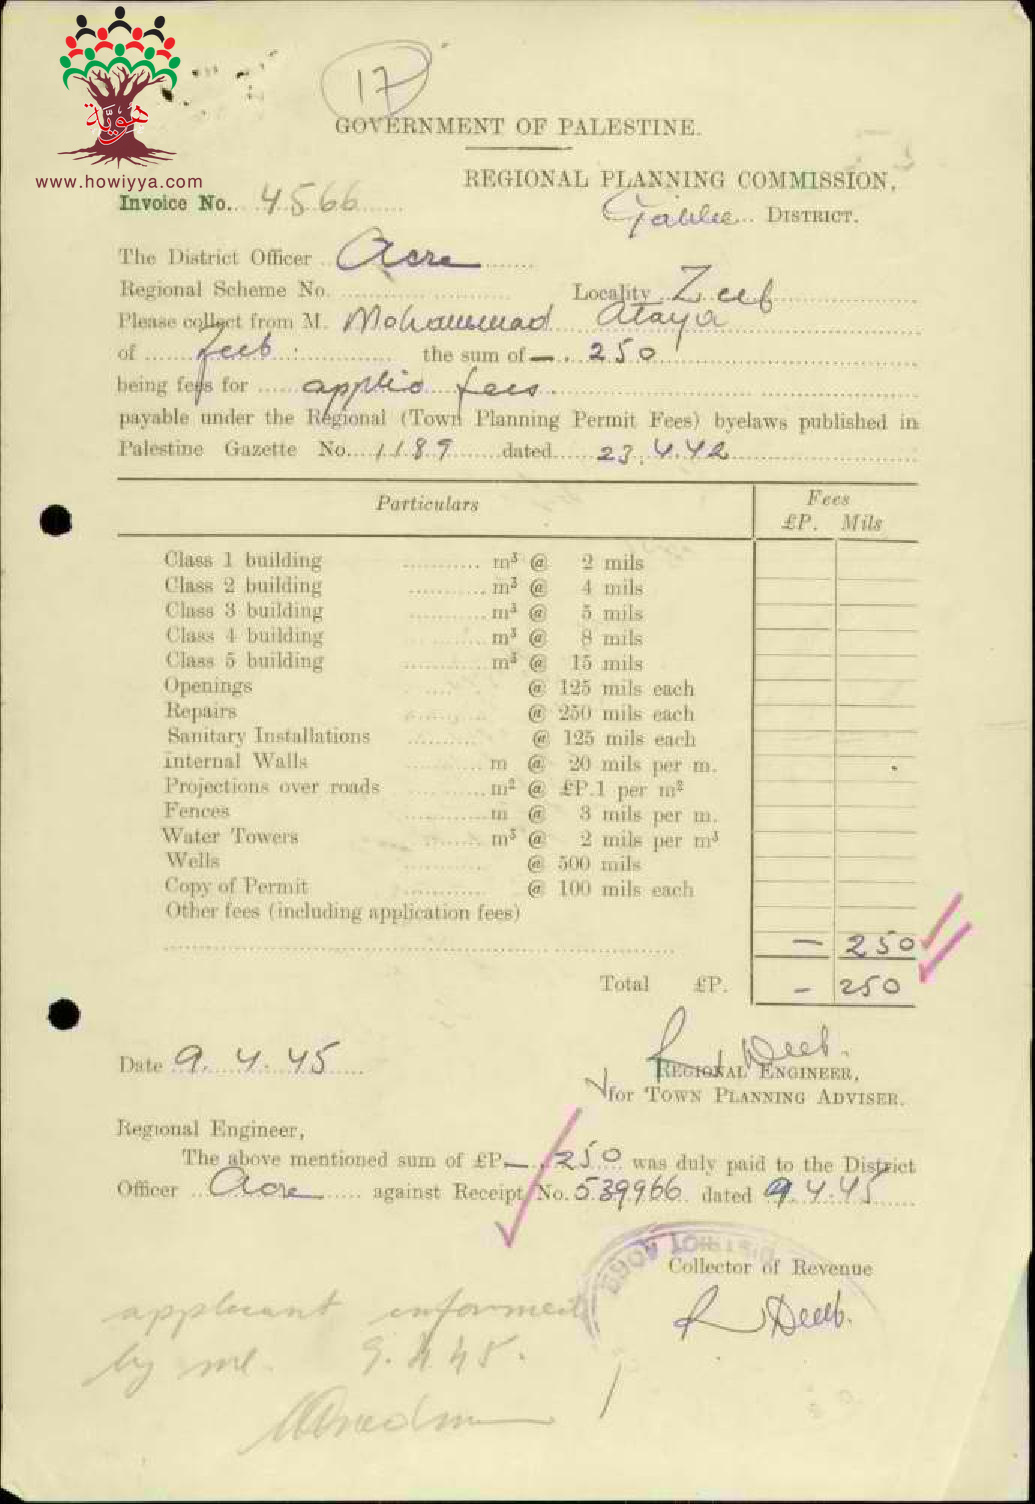 17
GOVERNMENT OF PALESTINE.
هوية
www.howiyya.com
REGIONAL PLANNING COMMISSION,
Invoice No. 4566
Galilee DISTRICT.
The District Officer Acre
Regional Scheme No. Locality Zeeb
Please collect from M. Mohammad Ataya
of Zeeb the sum of — . 250
being fees for applio fees.
payable under the Regional (Town Planning Permit Fees) byelaws published in
Palestine Gazette No. 1189 dated 23.4.42
Particulars Fees
£P. Mils
Class 1 building m³ @ 2 mils
Class 2 building m³ @ 4 mils
Class 3 building m³ @ 5 mils
Class 4 building m³ @ 8 mils
Class 5 building m³ @ 15 mils
Openings @ 125 mils each
Repairs @ 250 mils each
Sanitary Installations @ 125 mils each
Internal Walls m @ 20 mils per m.
Projections over roads m² @ £P.1 per m²
Fences m @ 3 mils per m.
Water Towers m³ @ 2 mils per m³
Wells @ 500 mils
Copy of Permit @ 100 mils each
Other fees (including application fees)
— 250
Total £P. — 250
Date 9.4.45
R Deeb.
REGIONAL ENGINEER,
for TOWN PLANNING ADVISER.
Regional Engineer,
The above mentioned sum of £P — . 250 was duly paid to the District
Officer Acre against Receipt No. 539966 dated 9.4.45
DISTRICT
Collector of Revenue
R Deeb.
applicant informed
by me. 9.4.45.